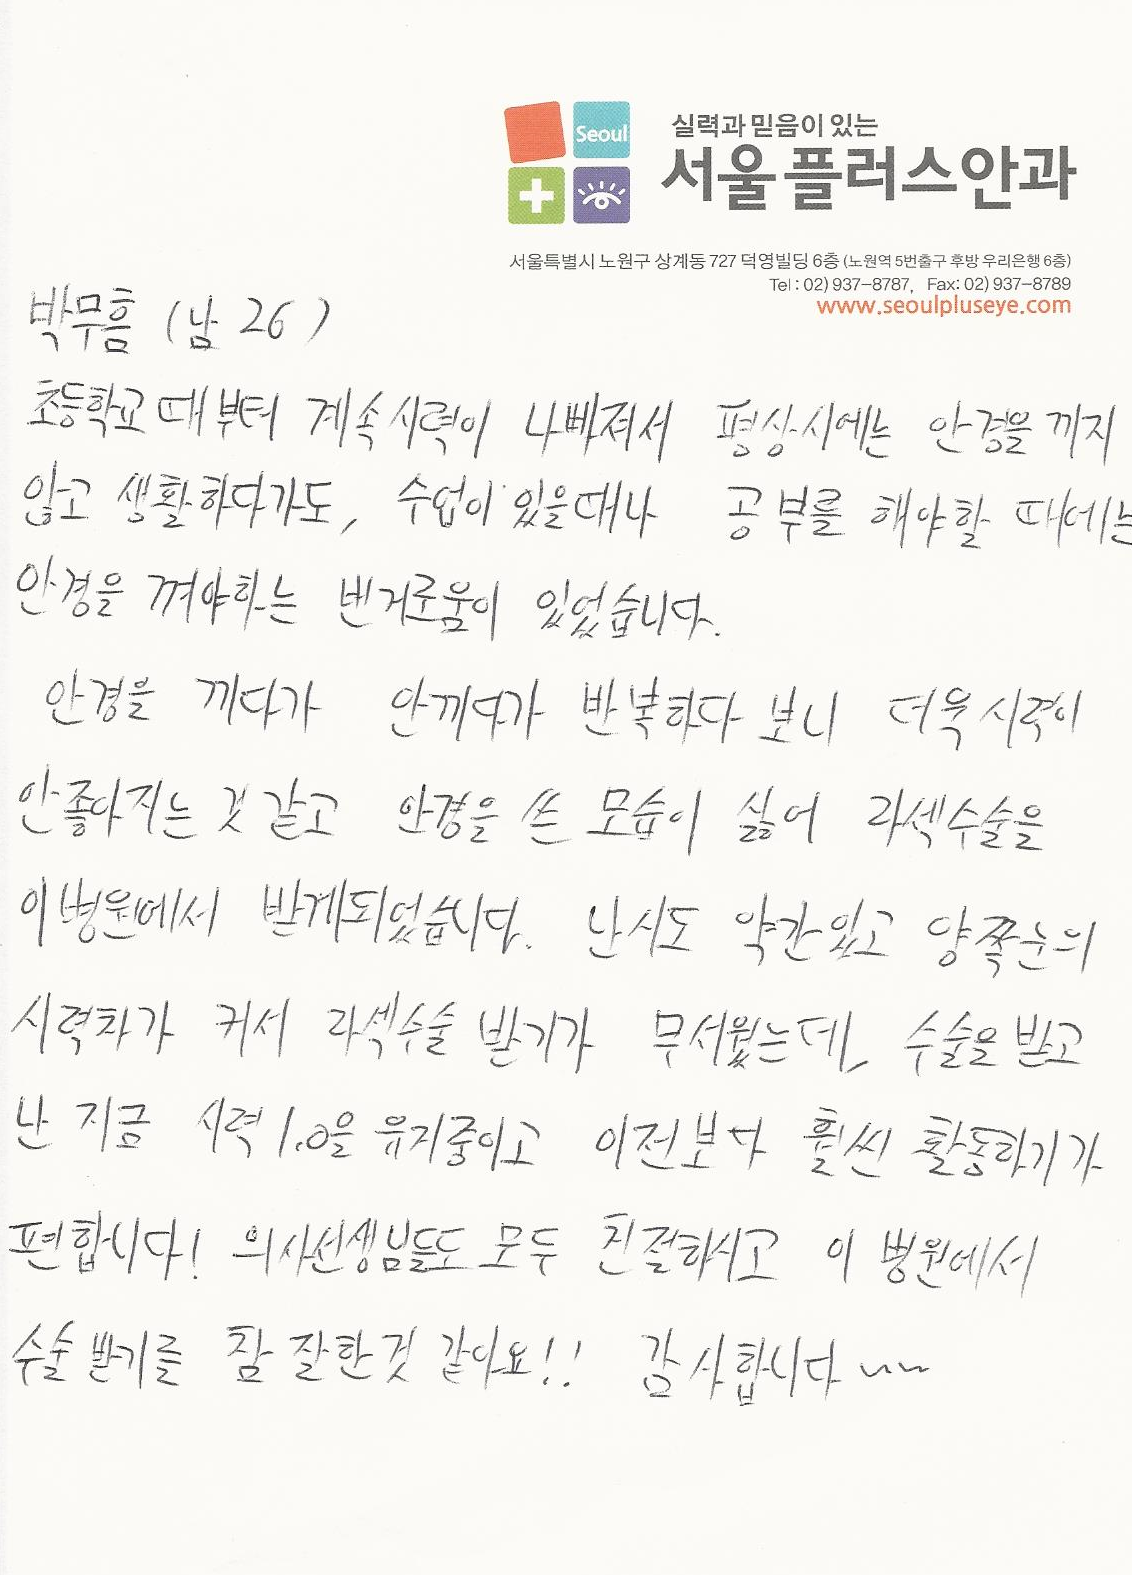 Seoul
실력과 믿음이 있는
서울플러스안과
서울특별시 노원구 상계동 727 덕영빌딩 6층 (노원역 5번출구 후방 우리은행 6층)
Tel : 02) 937-8787, Fax: 02) 937-8789
www.seoulpluseye.com
박무흠 (남 26)
초등학교때부터 계속시력이 나빠져서 평상시에는 안경을 끼지
않고 생활하다가도, 수업이 있을때나 공부를 해야할 때에는
안경을 껴야하는 번거로움이 있었습니다.
안경을 끼다가 안끼다가 반복하다 보니 더욱 시력이
안좋아지는 것 같고 안경을 쓴 모습이 싫어 라섹수술을
이병원에서 받게되었습니다. 난시도 약간있고 양쪽눈의
시력차가 커서 라섹수술 받기가 무서웠는데, 수술을 받고
난 지금 시력 1.0을 유지중이고 이전보다 훨씬 활동하기가
편합니다! 의사선생님들도 모두 친절하시고 이 병원에서
수술 받기를 참 잘한것 같아요!! 감사합니다~~